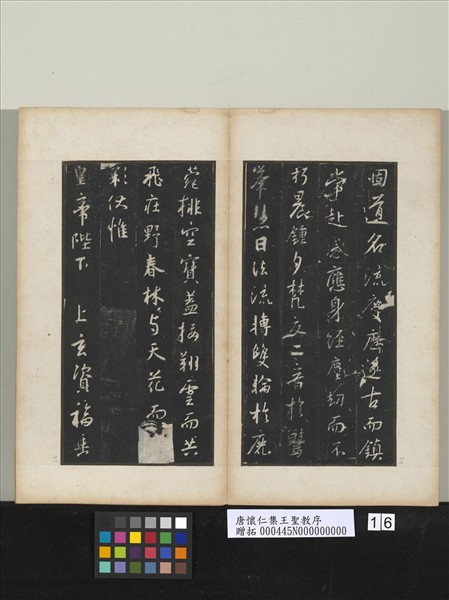 固道名流慶歷遂古而鎮
常赴感應身經塵劫而不
朽晨鍾夕梵交二音於鷲
峯慧日法流轉雙輪於鹿
菀排空寶蓋接翔雲而共
飛莊野春林與天花而
彩伏惟
皇帝陛下 上玄資福垂
唐懷仁集王聖教序
贈拓 000445N000000000
16